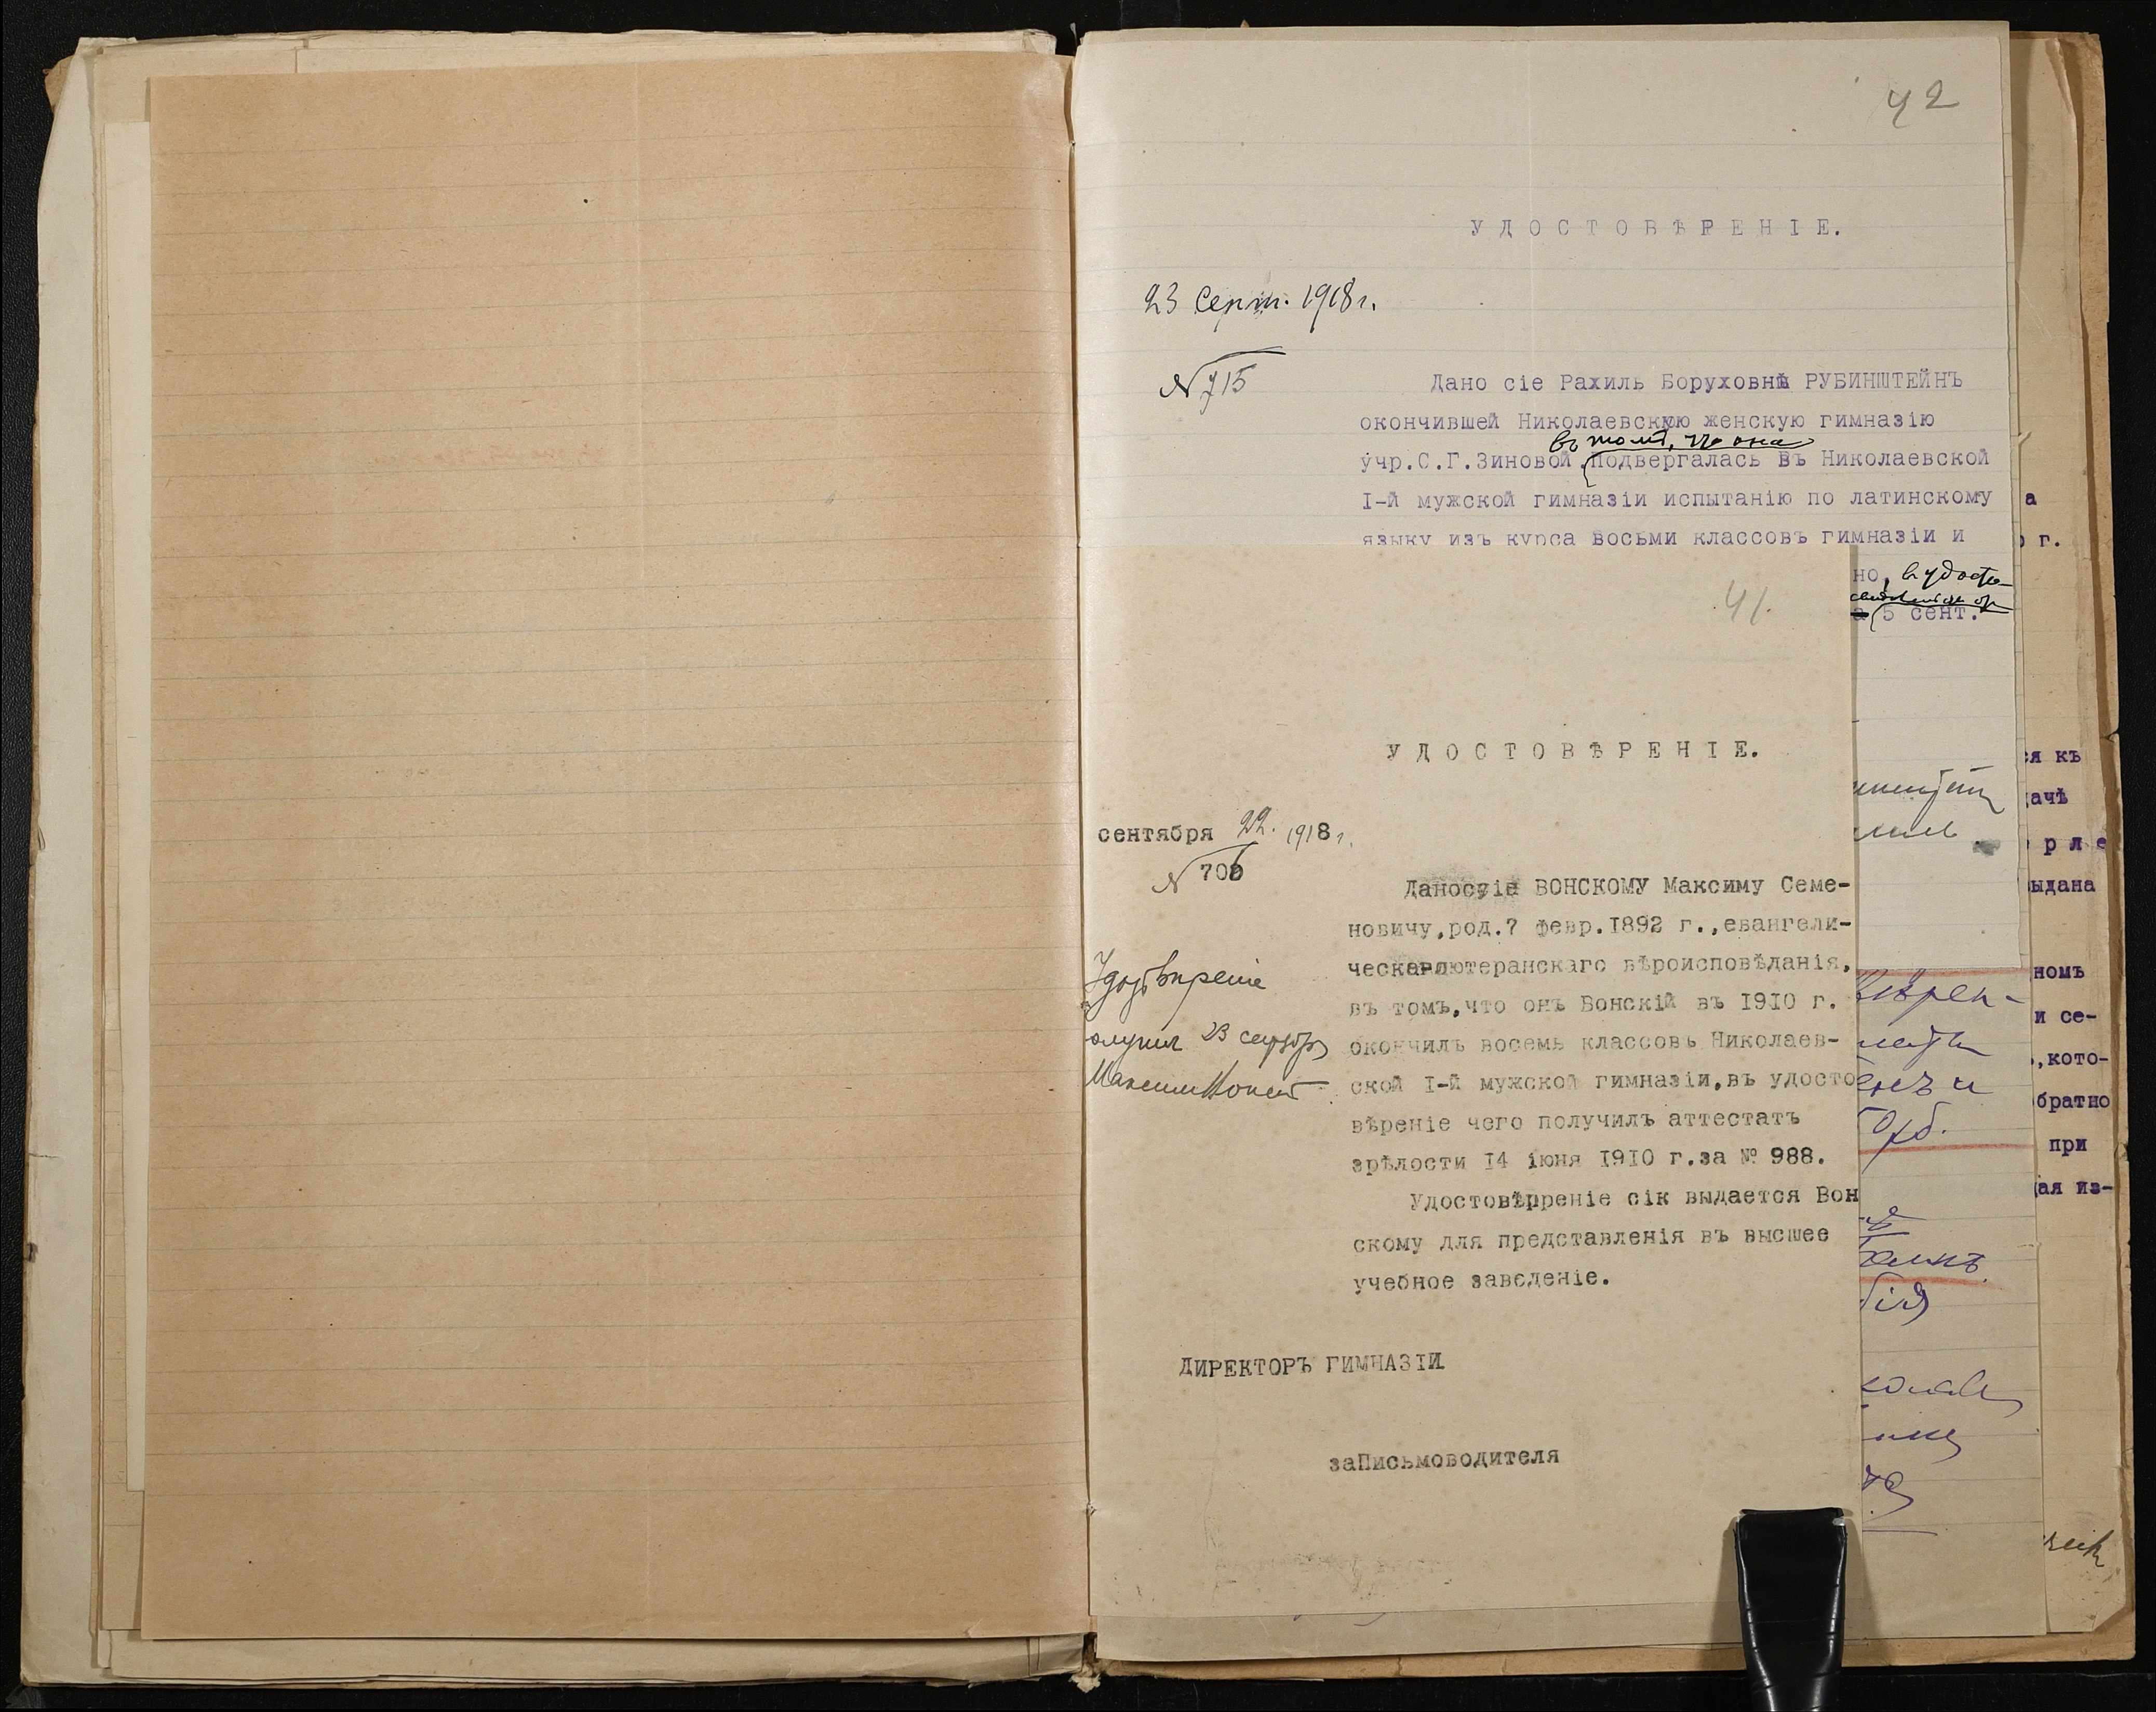 42
УДОСТОВѢРЕНІЕ.
23 Сент. 1918 г.
N 715
Дано сіе Рахиль Боруховнѣ РУБИНШТЕЙНЪ
окончившей Николаевскую женскую гимназію
въ томъ, что она
учр.С.Г.Зиновой подвергалась въ Николаевской
I-й мужской гимназіи испытанію по латинскому
языку изъ курса восьми классовъ гимназіи и
но, въ удосто
5 сент.
41.
УДОСТОВѢРЕНІЕ.
сентября 22. 1918 г.
N 706
Дано сіе ВОНСКОМУ Максиму Семе-
новичу,род.7 февр.1892 г.,евангели-
ческо-лютеранскаго вѣроисповѣданія,
въ томъ,что онъ Вонскій въ 1910 г.
окончилъ восемь классовъ Николаев-
ской I-й мужской гимназіи,въ удосто
вѣреніе чего получилъ аттестатъ
зрѣлости 14 іюня 1910 г.за № 988.
Удостовѣрреніе сік выдается Вон
скому для представленія въ высшее
учебное заведеніе.
23
Максим
ДИРЕКТОРЪ ГИМНАЗІИ
заПисьмоводителя
а
г.
ся къ
ачѣ
р л е
ыдана
номъ
и се-
,кото-
братно
при
ая из-